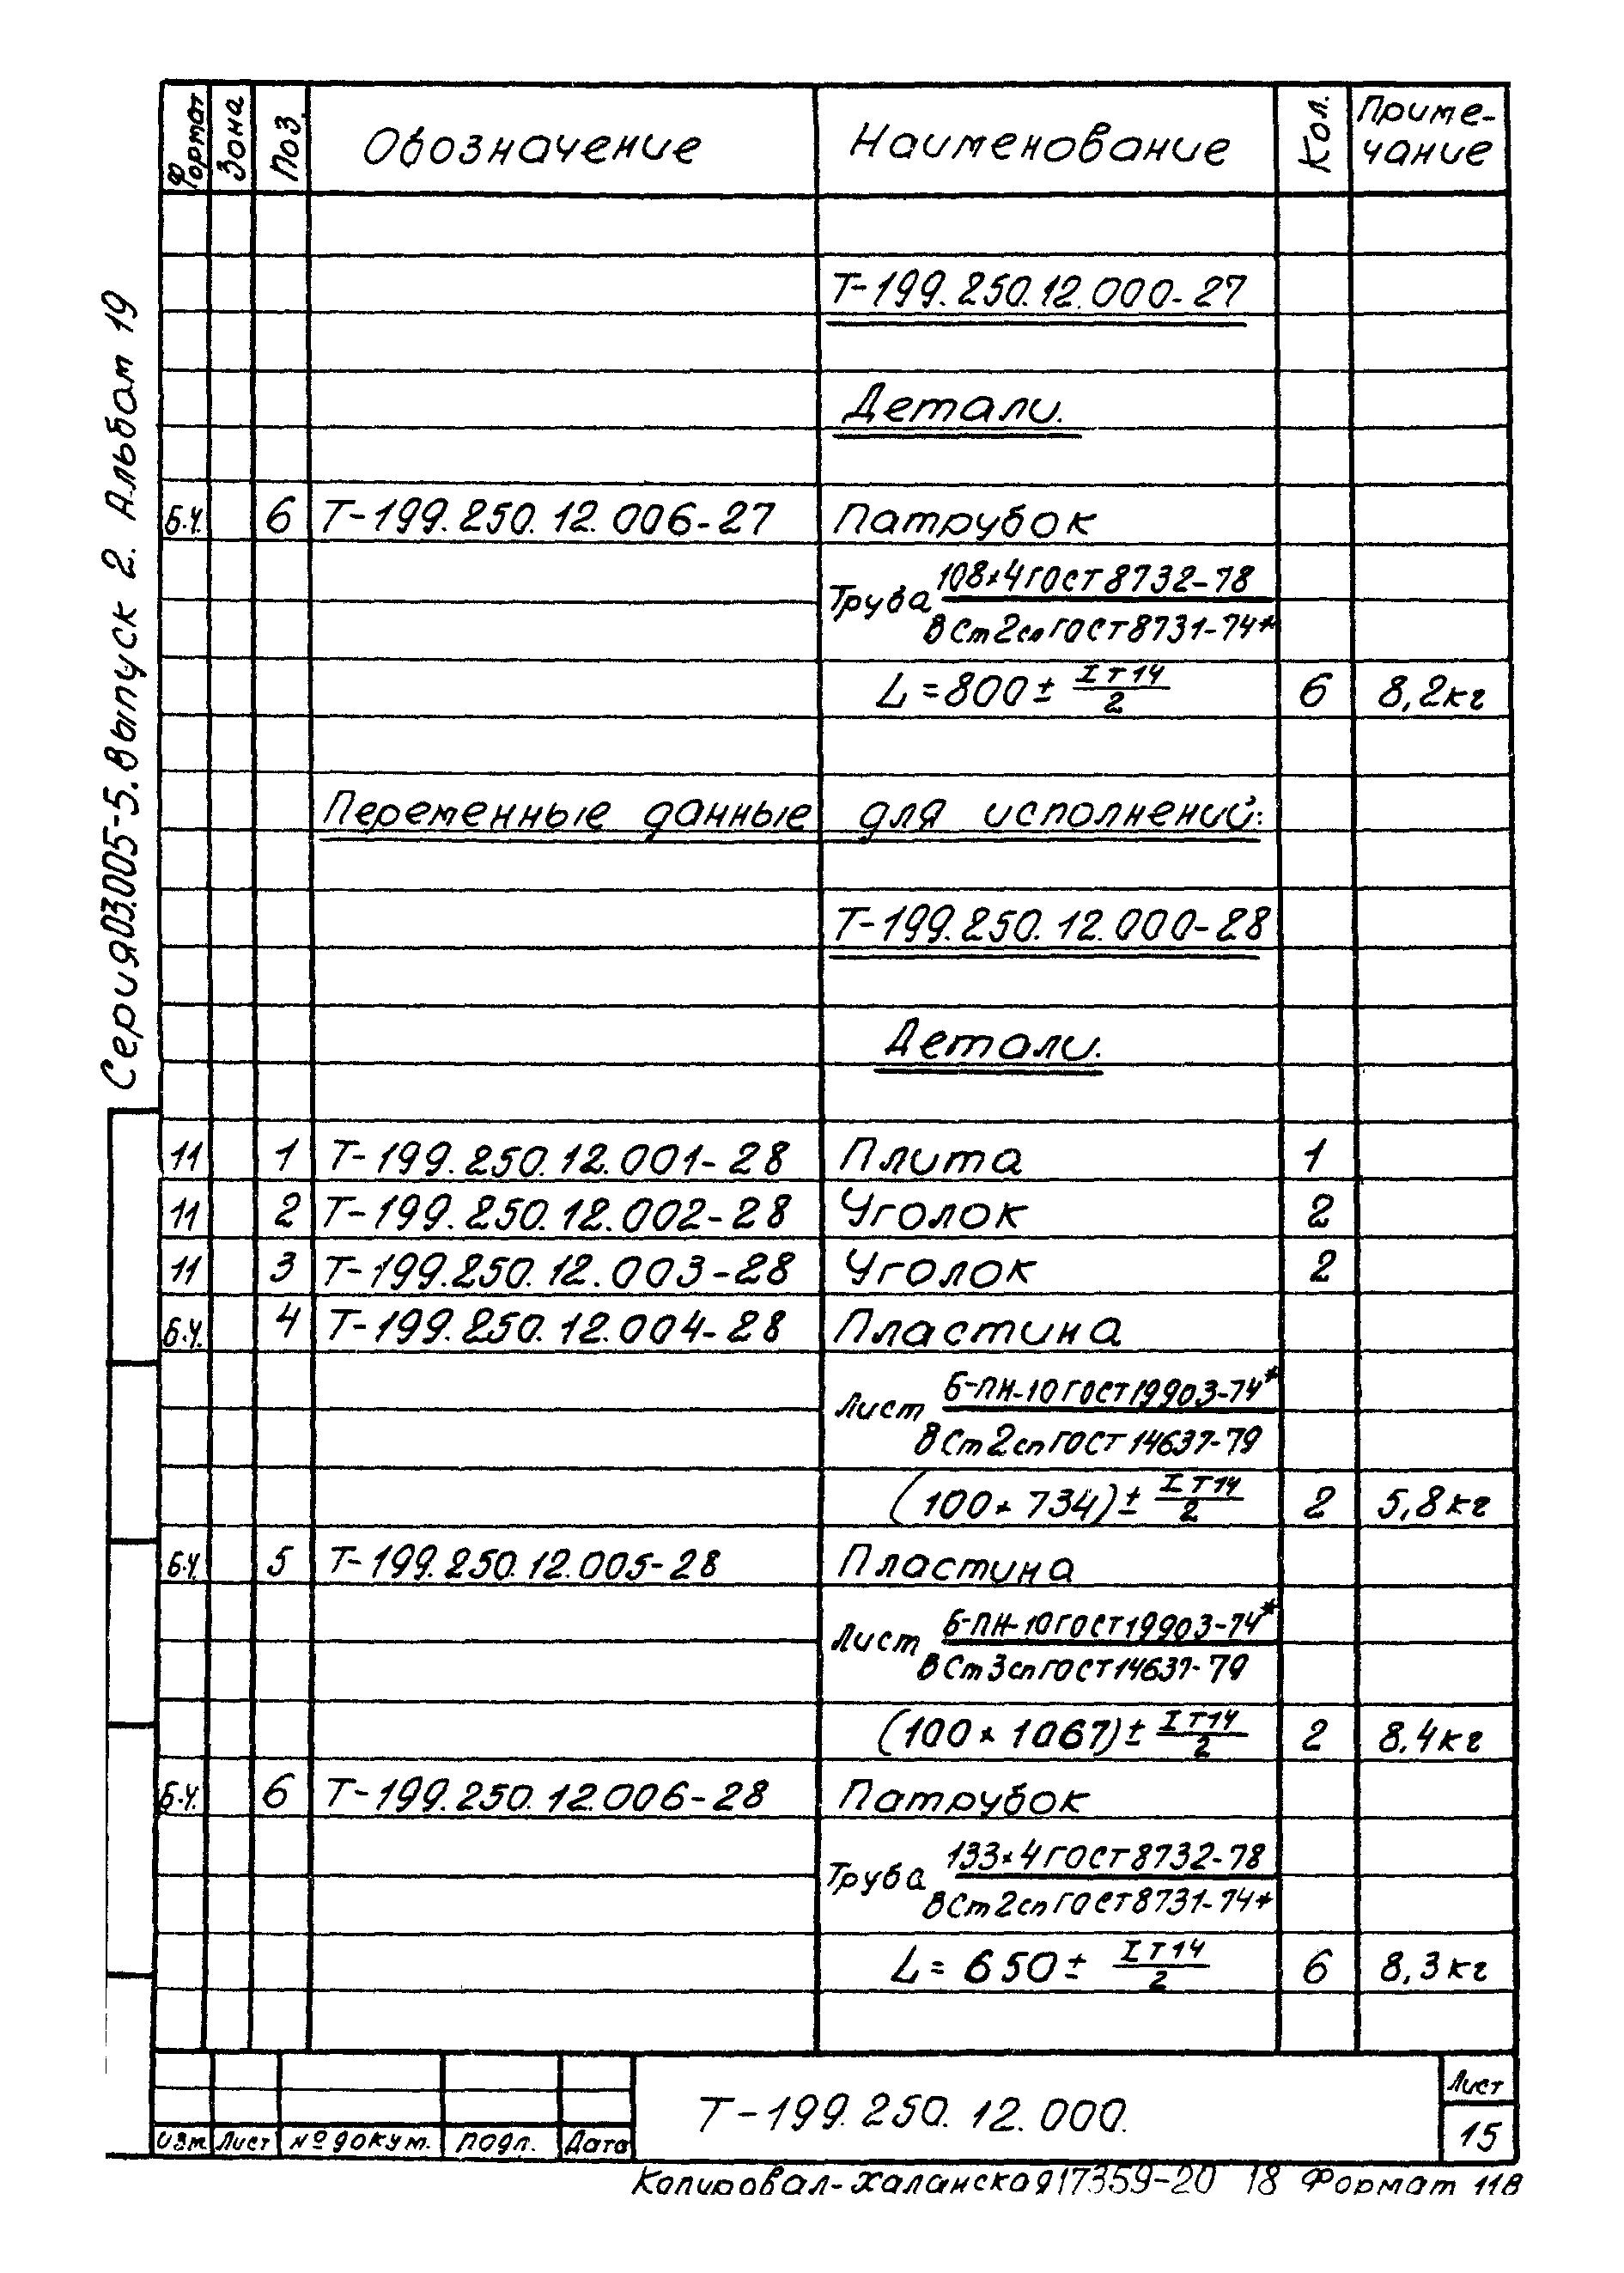 Серия 03.005-5. Выпуск 2. Альбом 19
Формат Зона Поз. Обозначение Наименование Кол. Приме-
чание
Т-199.250.12.000-27
Детали.
Б.Ч. 6 Т-199.250.12.006-27 Патрубок
Труба 108×4 ГОСТ 8732-78
В Ст2сп ГОСТ 8731-74*
L=800 ± IT14/2 6 8,2кг
Переменные данные для исполнений:
Т-199.250.12.000-28
Детали.
11 1 Т-199.250.12.001-28 Плита 1
11 2 Т-199.250.12.002-28 Уголок 2
11 3 Т-199.250.12.003-28 Уголок 2
Б.Ч. 4 Т-199.250.12.004-28 Пластина
Лист Б-ПН-10 ГОСТ 19903-74*
В Ст2сп ГОСТ 14637-79
(100×734) ± IT14/2 2 5,8кг
Б.Ч. 5 Т-199.250.12.005-28 Пластина
Лист Б-ПН-10 ГОСТ 19903-74*
В Ст3сп ГОСТ 14637-79
(100×1067) ± IT14/2 2 8,4кг
Б.Ч. 6 Т-199.250.12.006-28 Патрубок
Труба 133×4 ГОСТ 8732-78
В Ст2сп ГОСТ 8731-74*
L=650 ± IT14/2 6 8,3кг
Т-199.250.12.000.
Лист
15
Изм Лист № докум. Подп. Дата
Копировал-Халанская 17359-20 18 Формат 11В